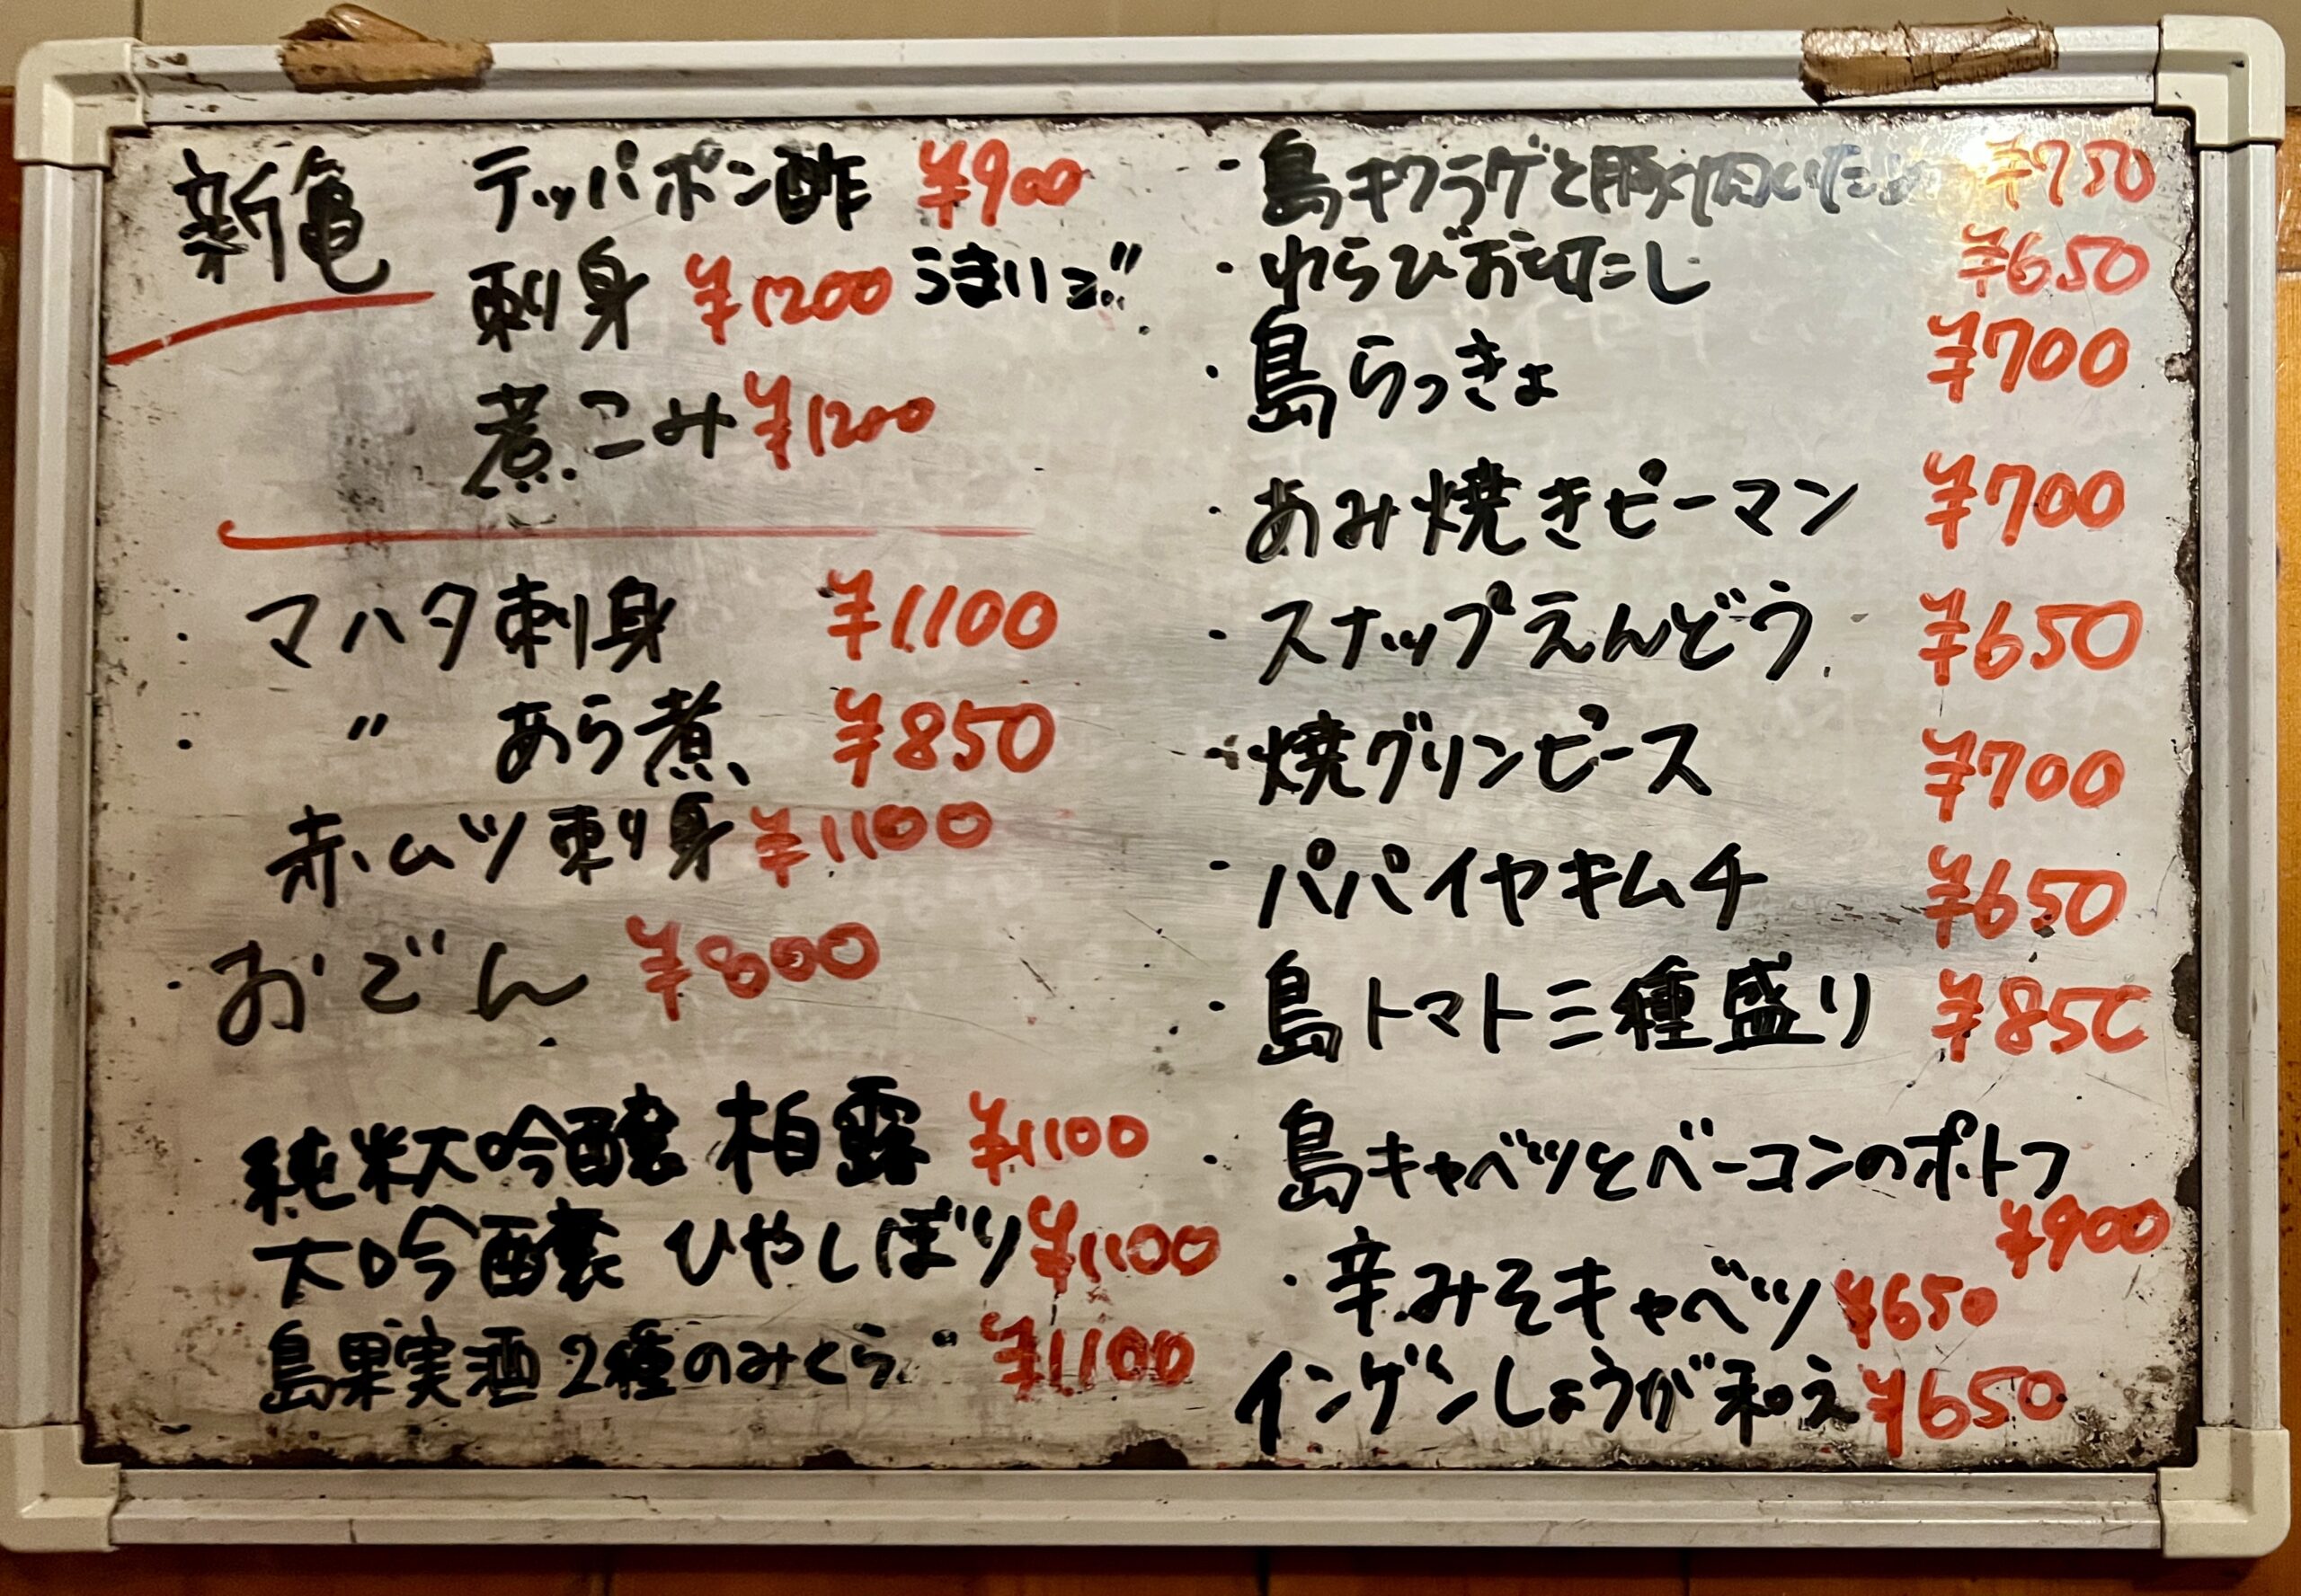 新亀 テッパポン酢 ¥900
刺身 ¥1200 うまいヨ!!
煮こみ ¥1200
・マハタ刺身 ¥1,100
・〃 あら煮 ¥850
赤ムツ刺身 ¥1100
・おでん ¥800
純米大吟醸 柏露 ¥1100
大吟醸 ひやしぼり ¥1100
島果実酒2種のみくらべ ¥1,100
・島キクラゲと豚肉いため ¥750
・わらびおひたし ¥650
・島らっきょ ¥700
・あみ焼きピーマン ¥700
・スナップえんどう ¥650
・焼グリンピース ¥700
・パパイヤキムチ ¥650
・島トマト三種盛り ¥850
・島キャベツとベーコンのポトフ
¥900
・辛みそキャベツ ¥650
インゲンしょうが和え ¥650